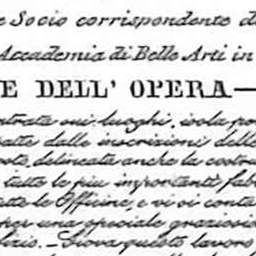 e Socio corrispondente d
Accademia di Belle Arti in
E DELL' OPERA—
ntrata sui luoghi, isola po
atte dalle inscrizioni delle
oste, delineata anche la costru
tutte le piu importanti fab
tte le Officine, e vi si conta
per una speciale grazios
izio. — Giova questo lavoro